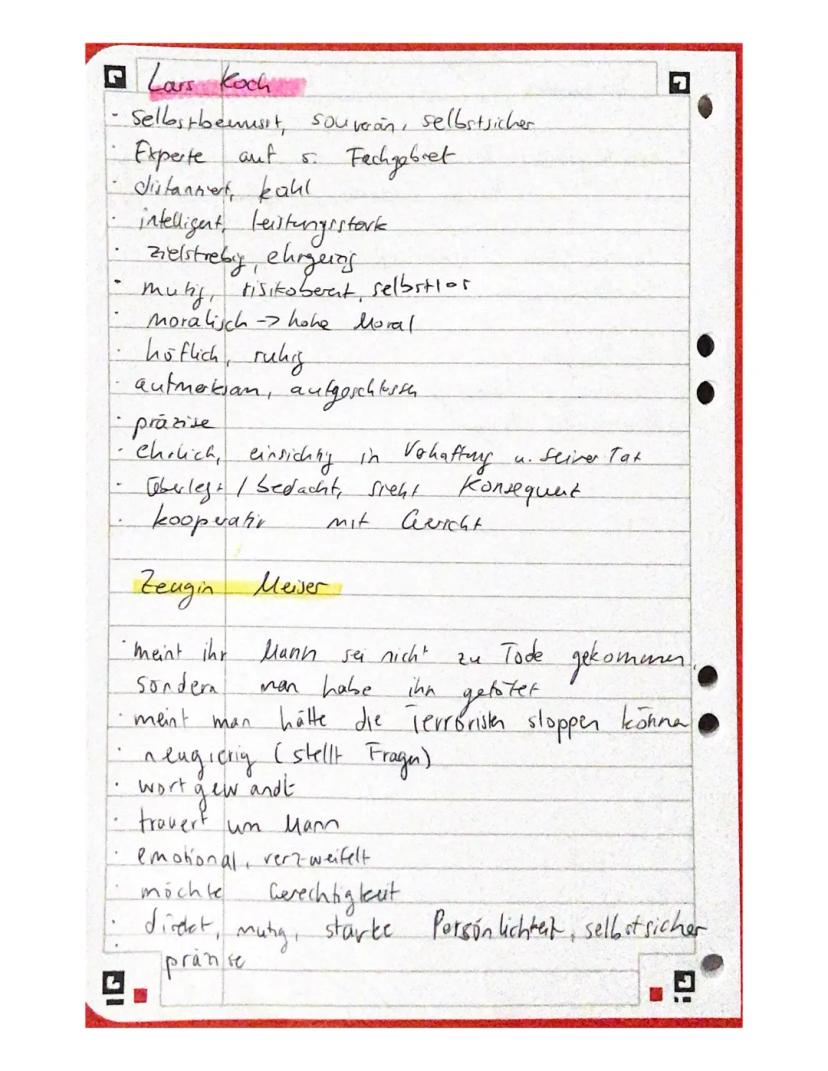 Lars Koch
· Selbstbewusst, souverän, selbstsicher
· Experte auf s. Fachgebiet
· distanziert, kühl
· intelligent, leistungsstark
· zielstrebig, ehrgeizig
· mutig, risikobereit, selbstlos
· moralisch -> hohe Moral
· höflich, ruhig
· aufmerksam, aufgeschlossen
· präzise
· ehrlich, einsichtig in Verhaftung u. seiner Tat
· überlegt / bedacht, steht Konsequent
· kooperativ mit Gericht
Zeugin Meiser
· meint ihr Mann sei nicht zu Tode gekommen,
sondern man habe ihn getötet
· meint man hätte die Terroristen stoppen können
· neugierig (stellt Fragen)
· wortgewandt
· trauert um Mann
· emotional, verzweifelt
· möchte Gerechtigkeit
· direkt, mutig, starke Persönlichkeit, selbstsicher
· präzise